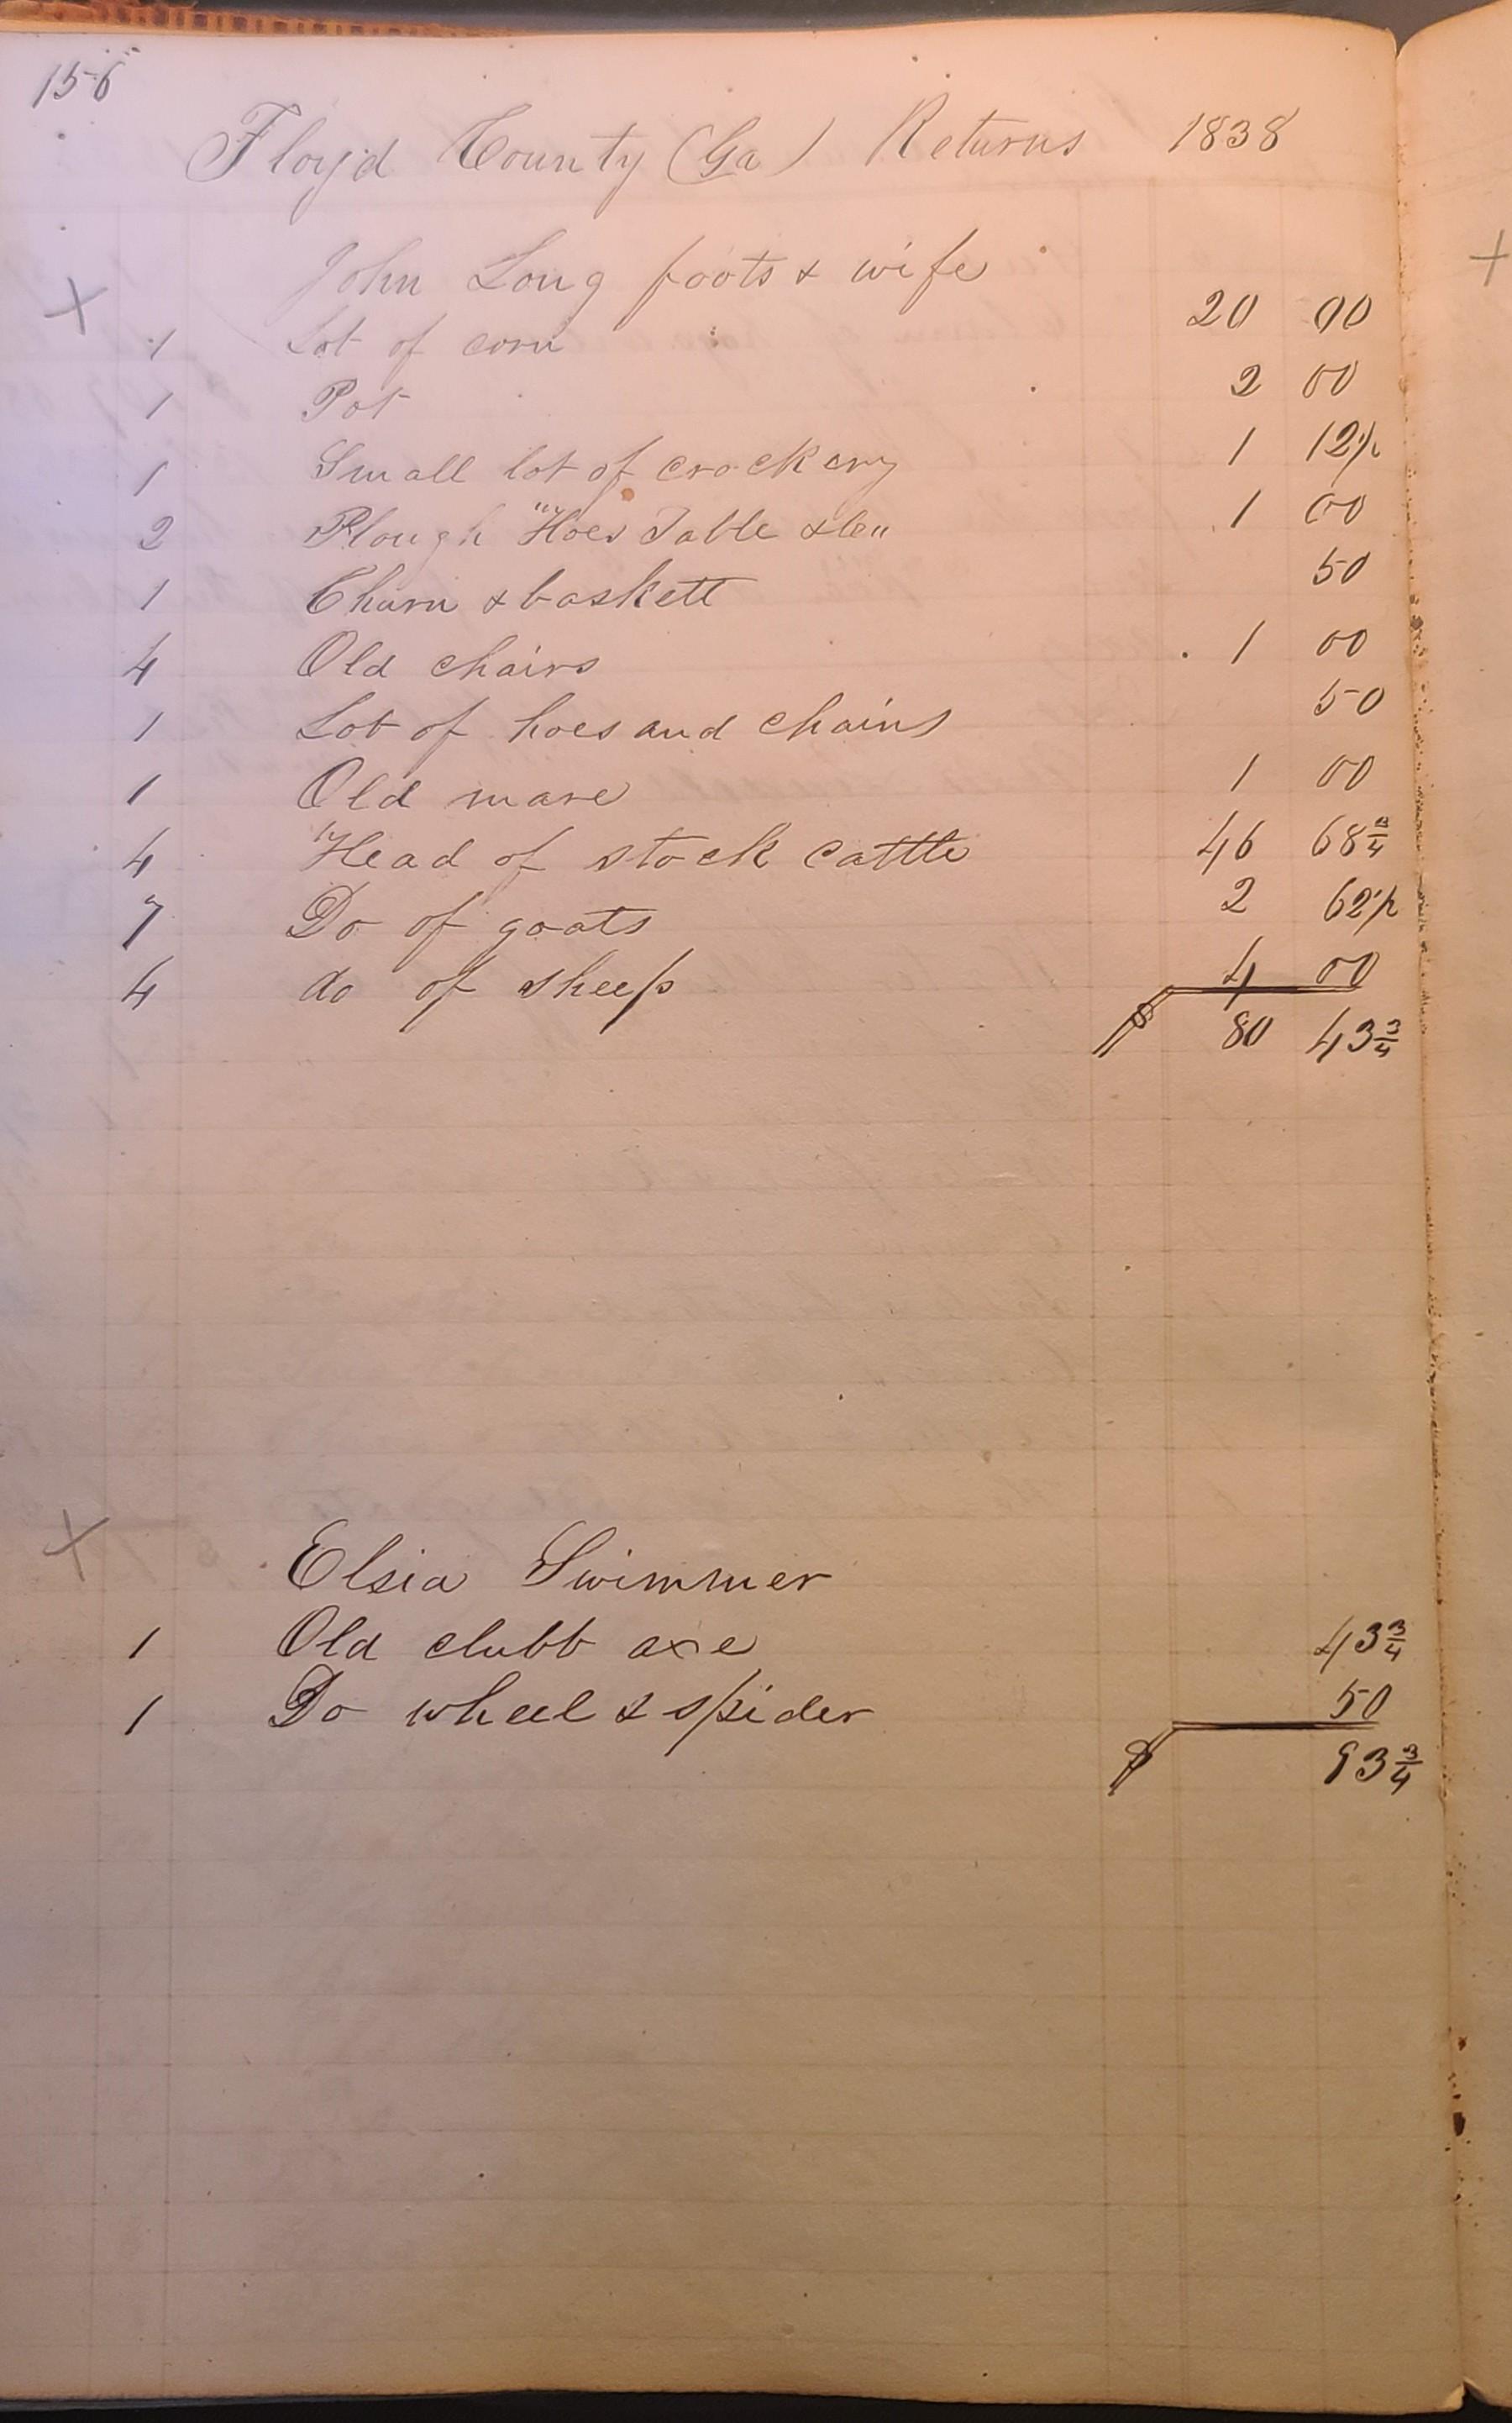 156
Floyd County (Ga) Returns 1838
+ John Long foots & wife
1 Lot of corn 20 00
1 Pot 2 00
1 Small lot of crockery 1 12½
2 Plough "Hoes Table &c" 1 00
1 Churn & baskett 50
4 Old chairs 1 00
1 Lot of hoes and chains 50
1 Old mare 1 00
4 Head of stock cattle 46 68¾
7 Do of goats 2 62½
4 do of sheep 4 00
$ 80 43¾
+ Elsia Swimmer
1 Old clubb axe 43¾
1 Do wheel & spider 50
$ 93¾
+